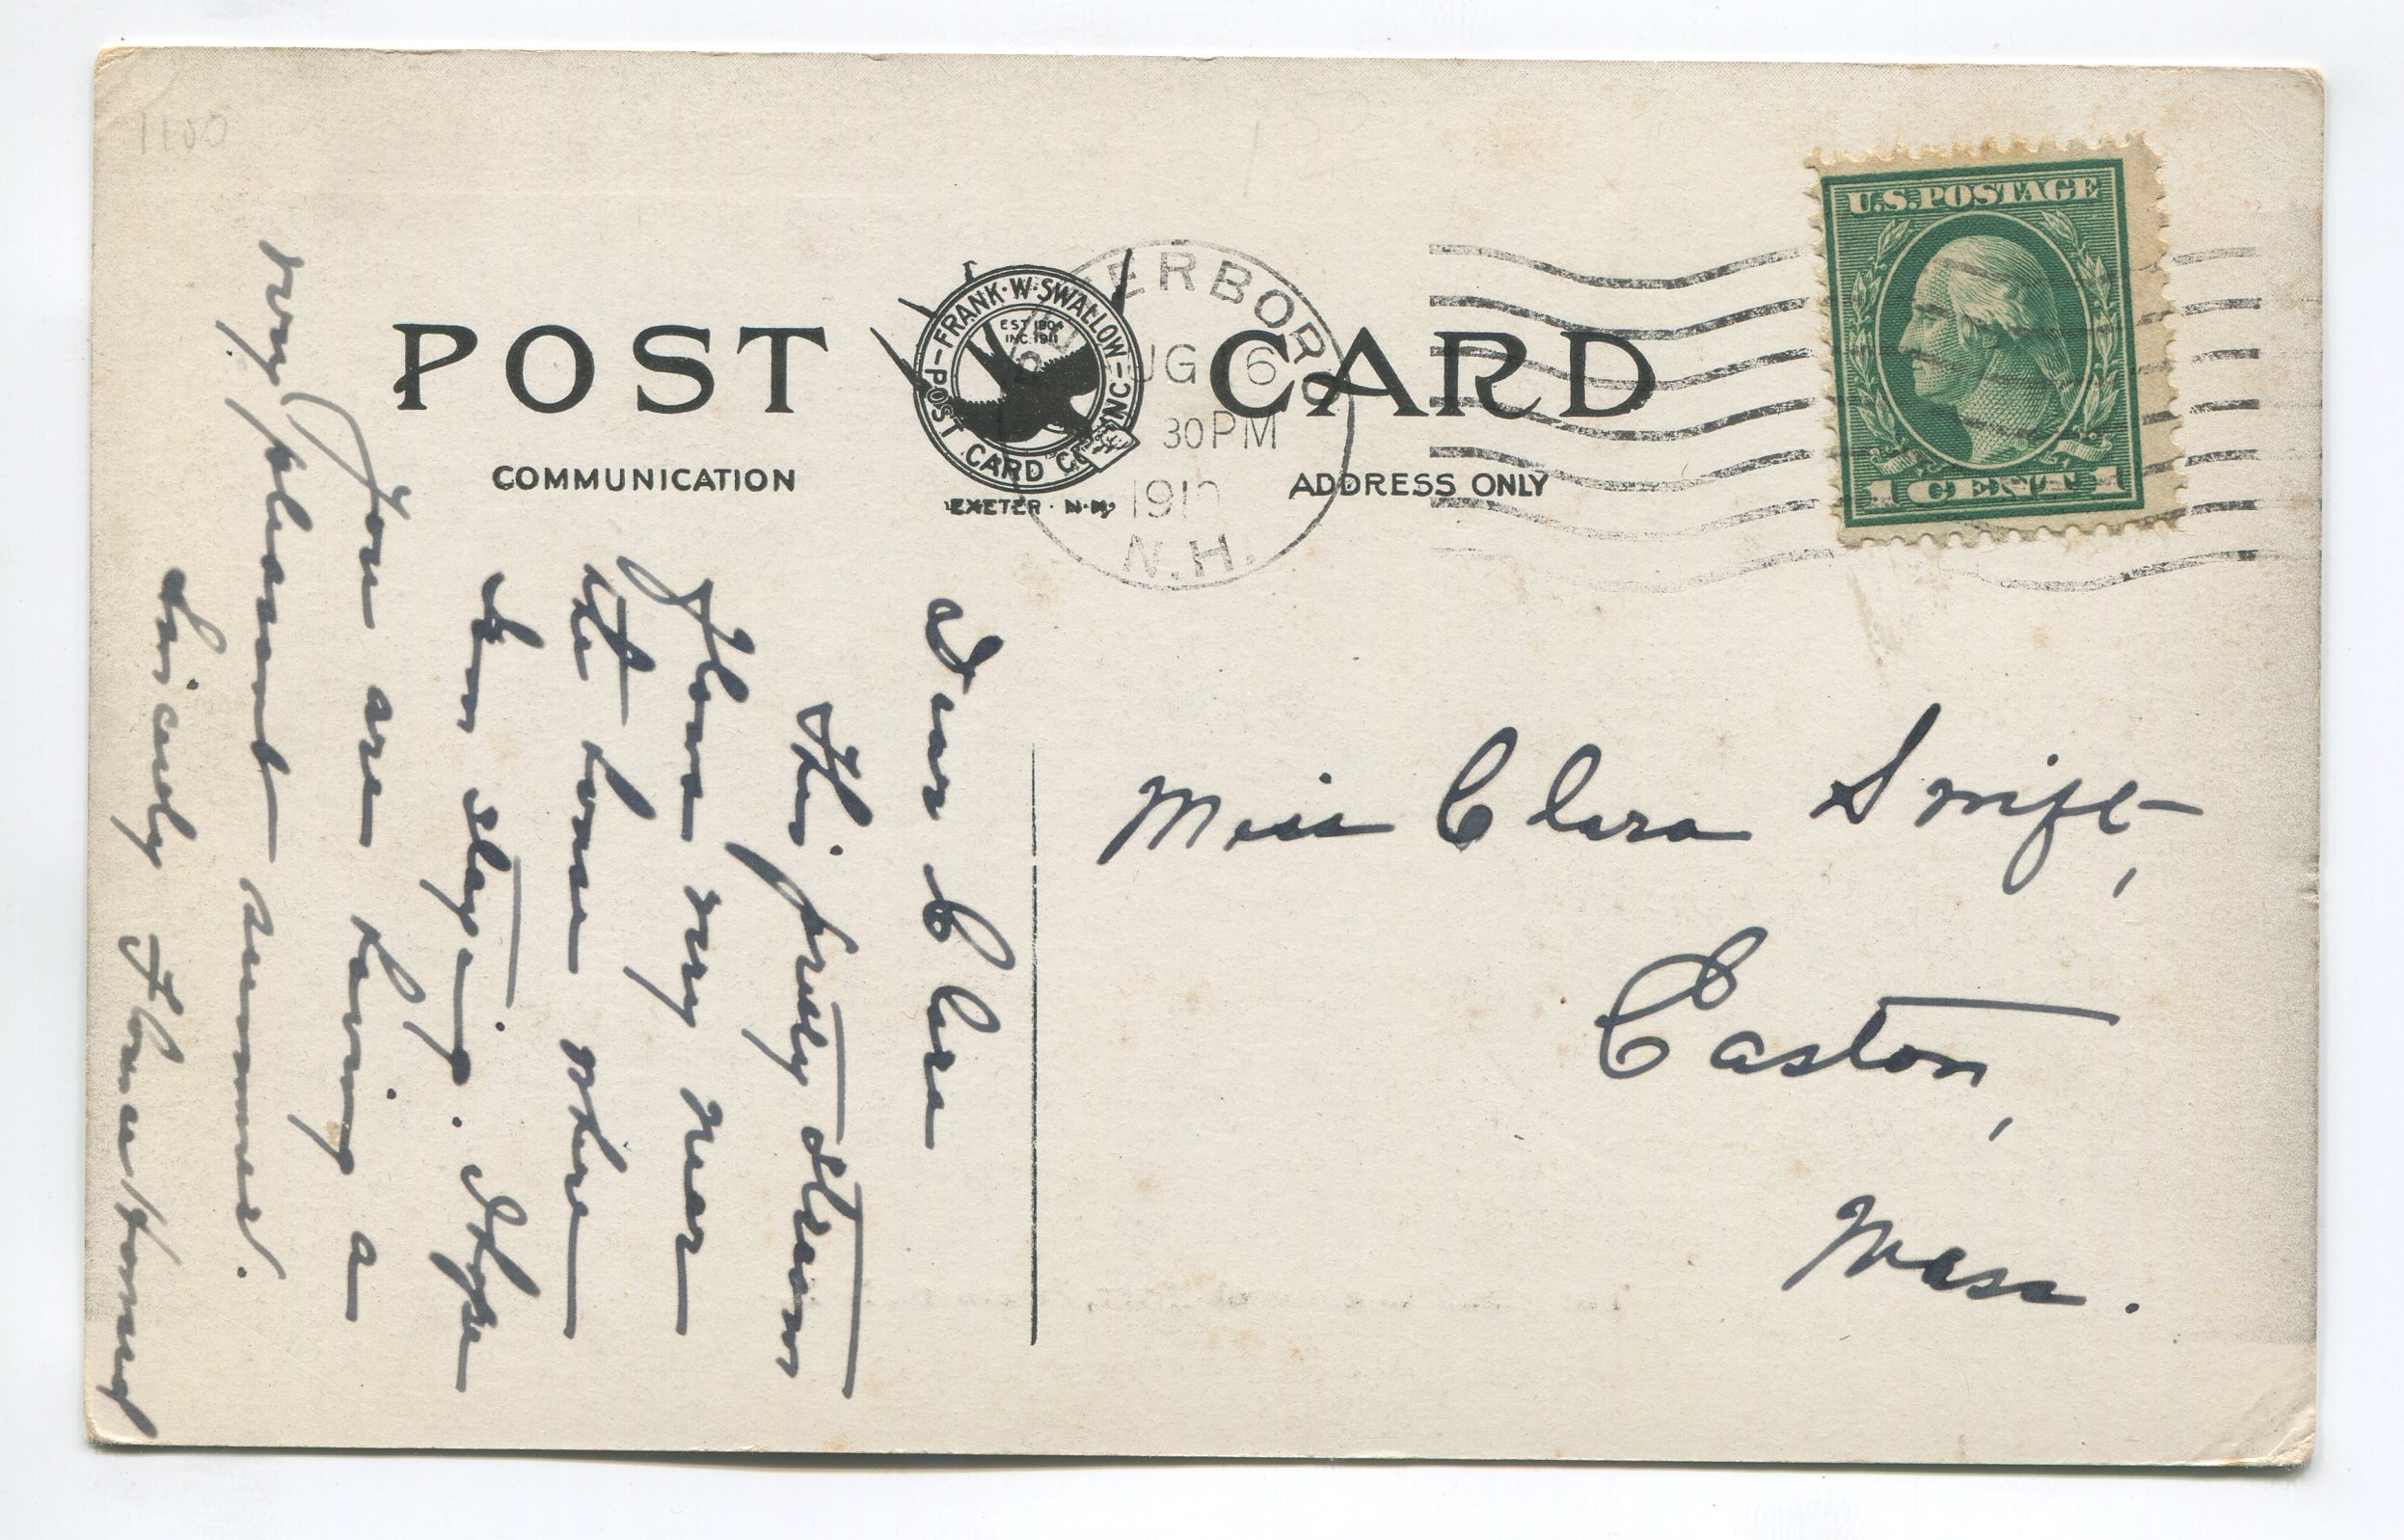 1100
POST CARD
FRANK·W·SWALLOW
POST CARD CO. INC
EST 1904
INC. 1911
EXETER · N·H·
COMMUNICATION
ADDRESS ONLY
ERBORO
UG 6
30PM
191
N.H.
U.S.POSTAGE
1 CENT 1
Dear Clara
This pretty stream
flows very near
the house where
I'm staying. I hope
You are having a
very pleasant summer.
Sincerely Florence
Miss Clara Swift,
Easton,
Mass.